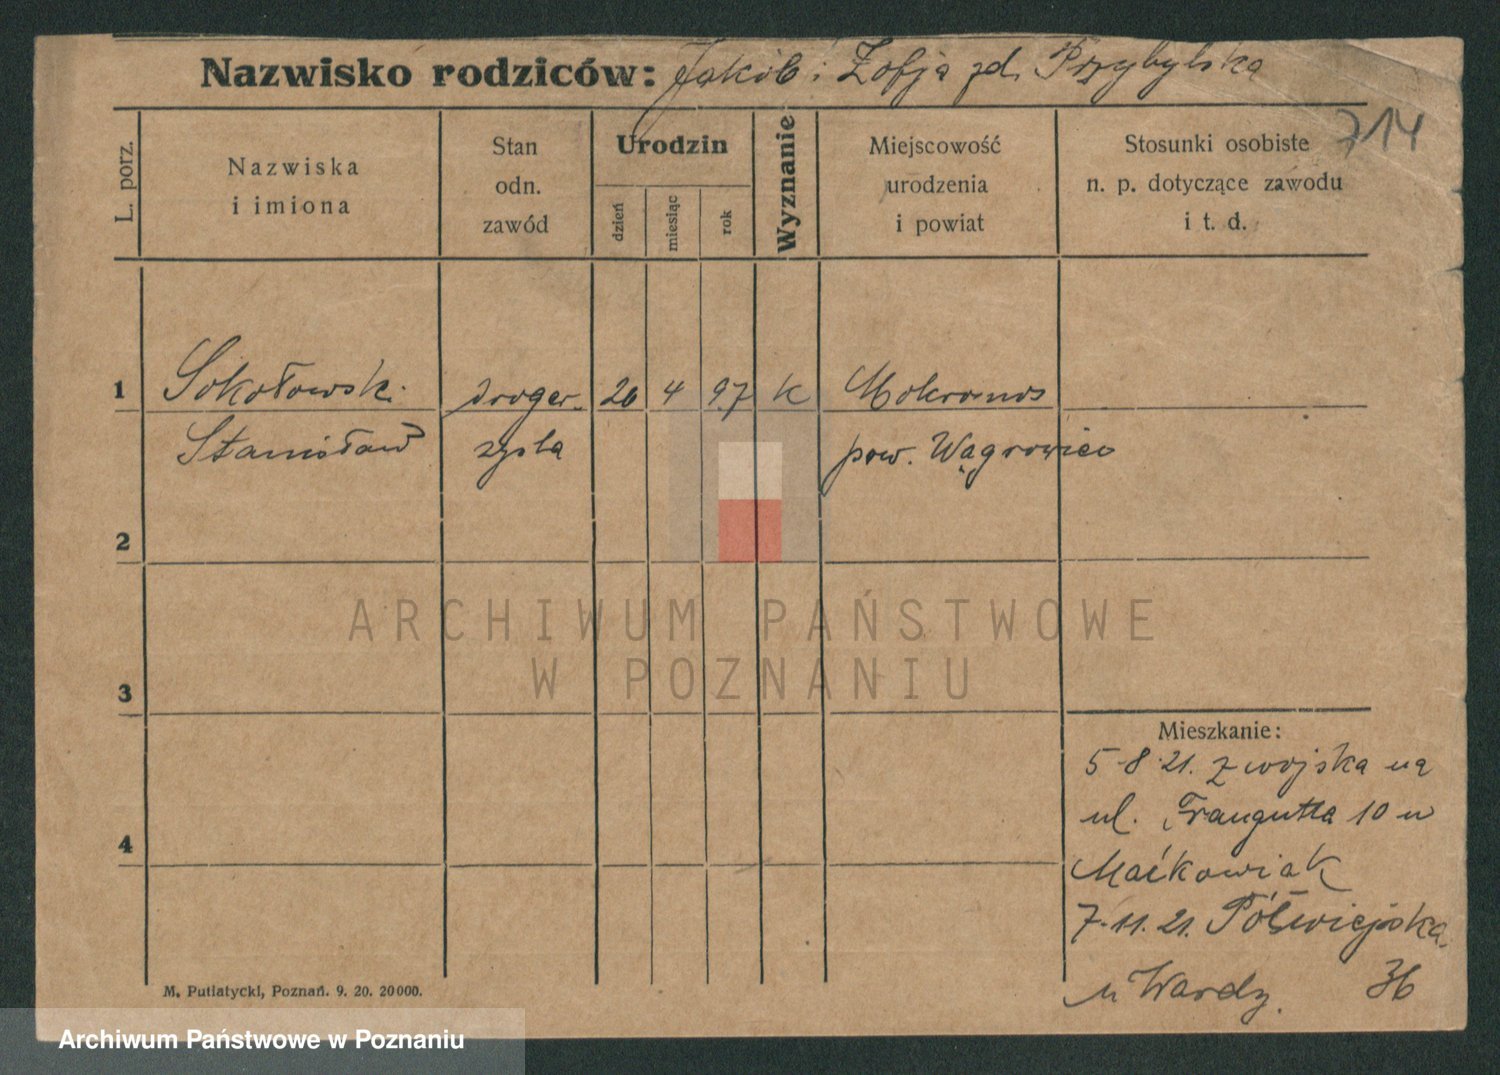 Nazwisko rodziców: Jakób i Zofja zd. Przybylska
714
L. porz.
Nazwiska
i imiona
Stan
odn.
zawód
Urodzin
dzień
miesiąc
rok
Wyznanie
Miejscowość
urodzenia
i powiat
Stosunki osobiste
n. p. dotyczące zawodu
i t. d.
1 Sokołowski droger- 20 4 97 K Mokronos
Stanisław zysta pow. Wągrowiec
2
3
4
ARCHIWUM PAŃSTWOWE
W POZNANIU
Mieszkanie:
5-8-21. z wojska na
ul. Traugutta 10 u
Maćkowiak
7.11.21. Półwiejska
u Wardz. 36
M. Putiatycki, Poznań. 9. 20. 20000.
Archiwum Państwowe w Poznaniu